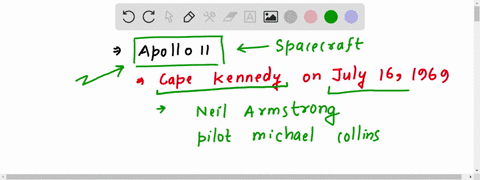 → Apollo 11 ← Spacecraft
→ Cape Kennedy on July 16, 1969
→ Neil Armstrong
pilot michael collins